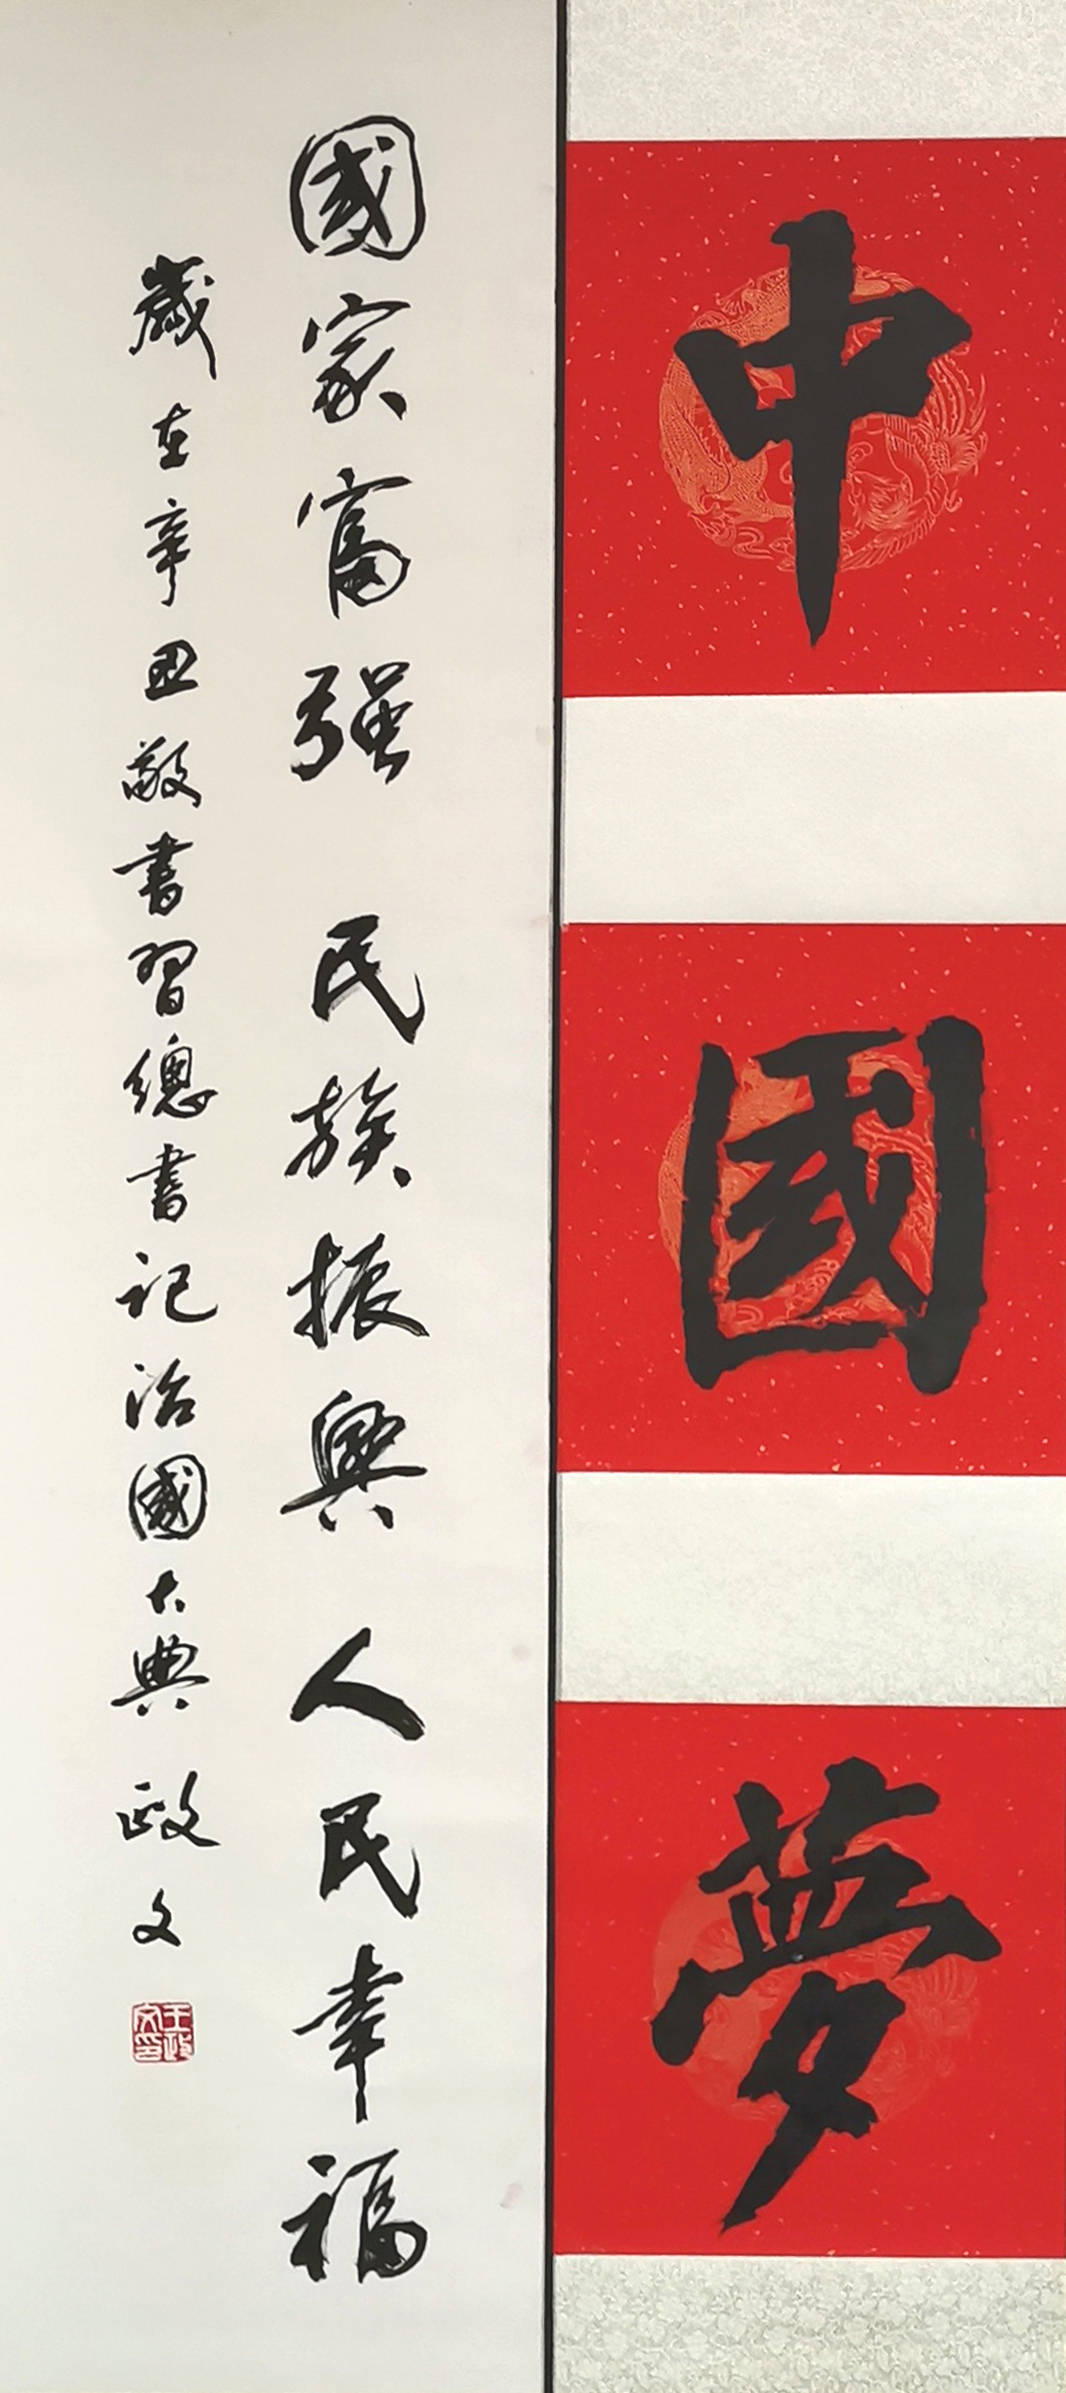 中國夢
國家富强 民族振興 人民幸福
歲在辛丑敬書習總書記治國大典 政文
王政文印